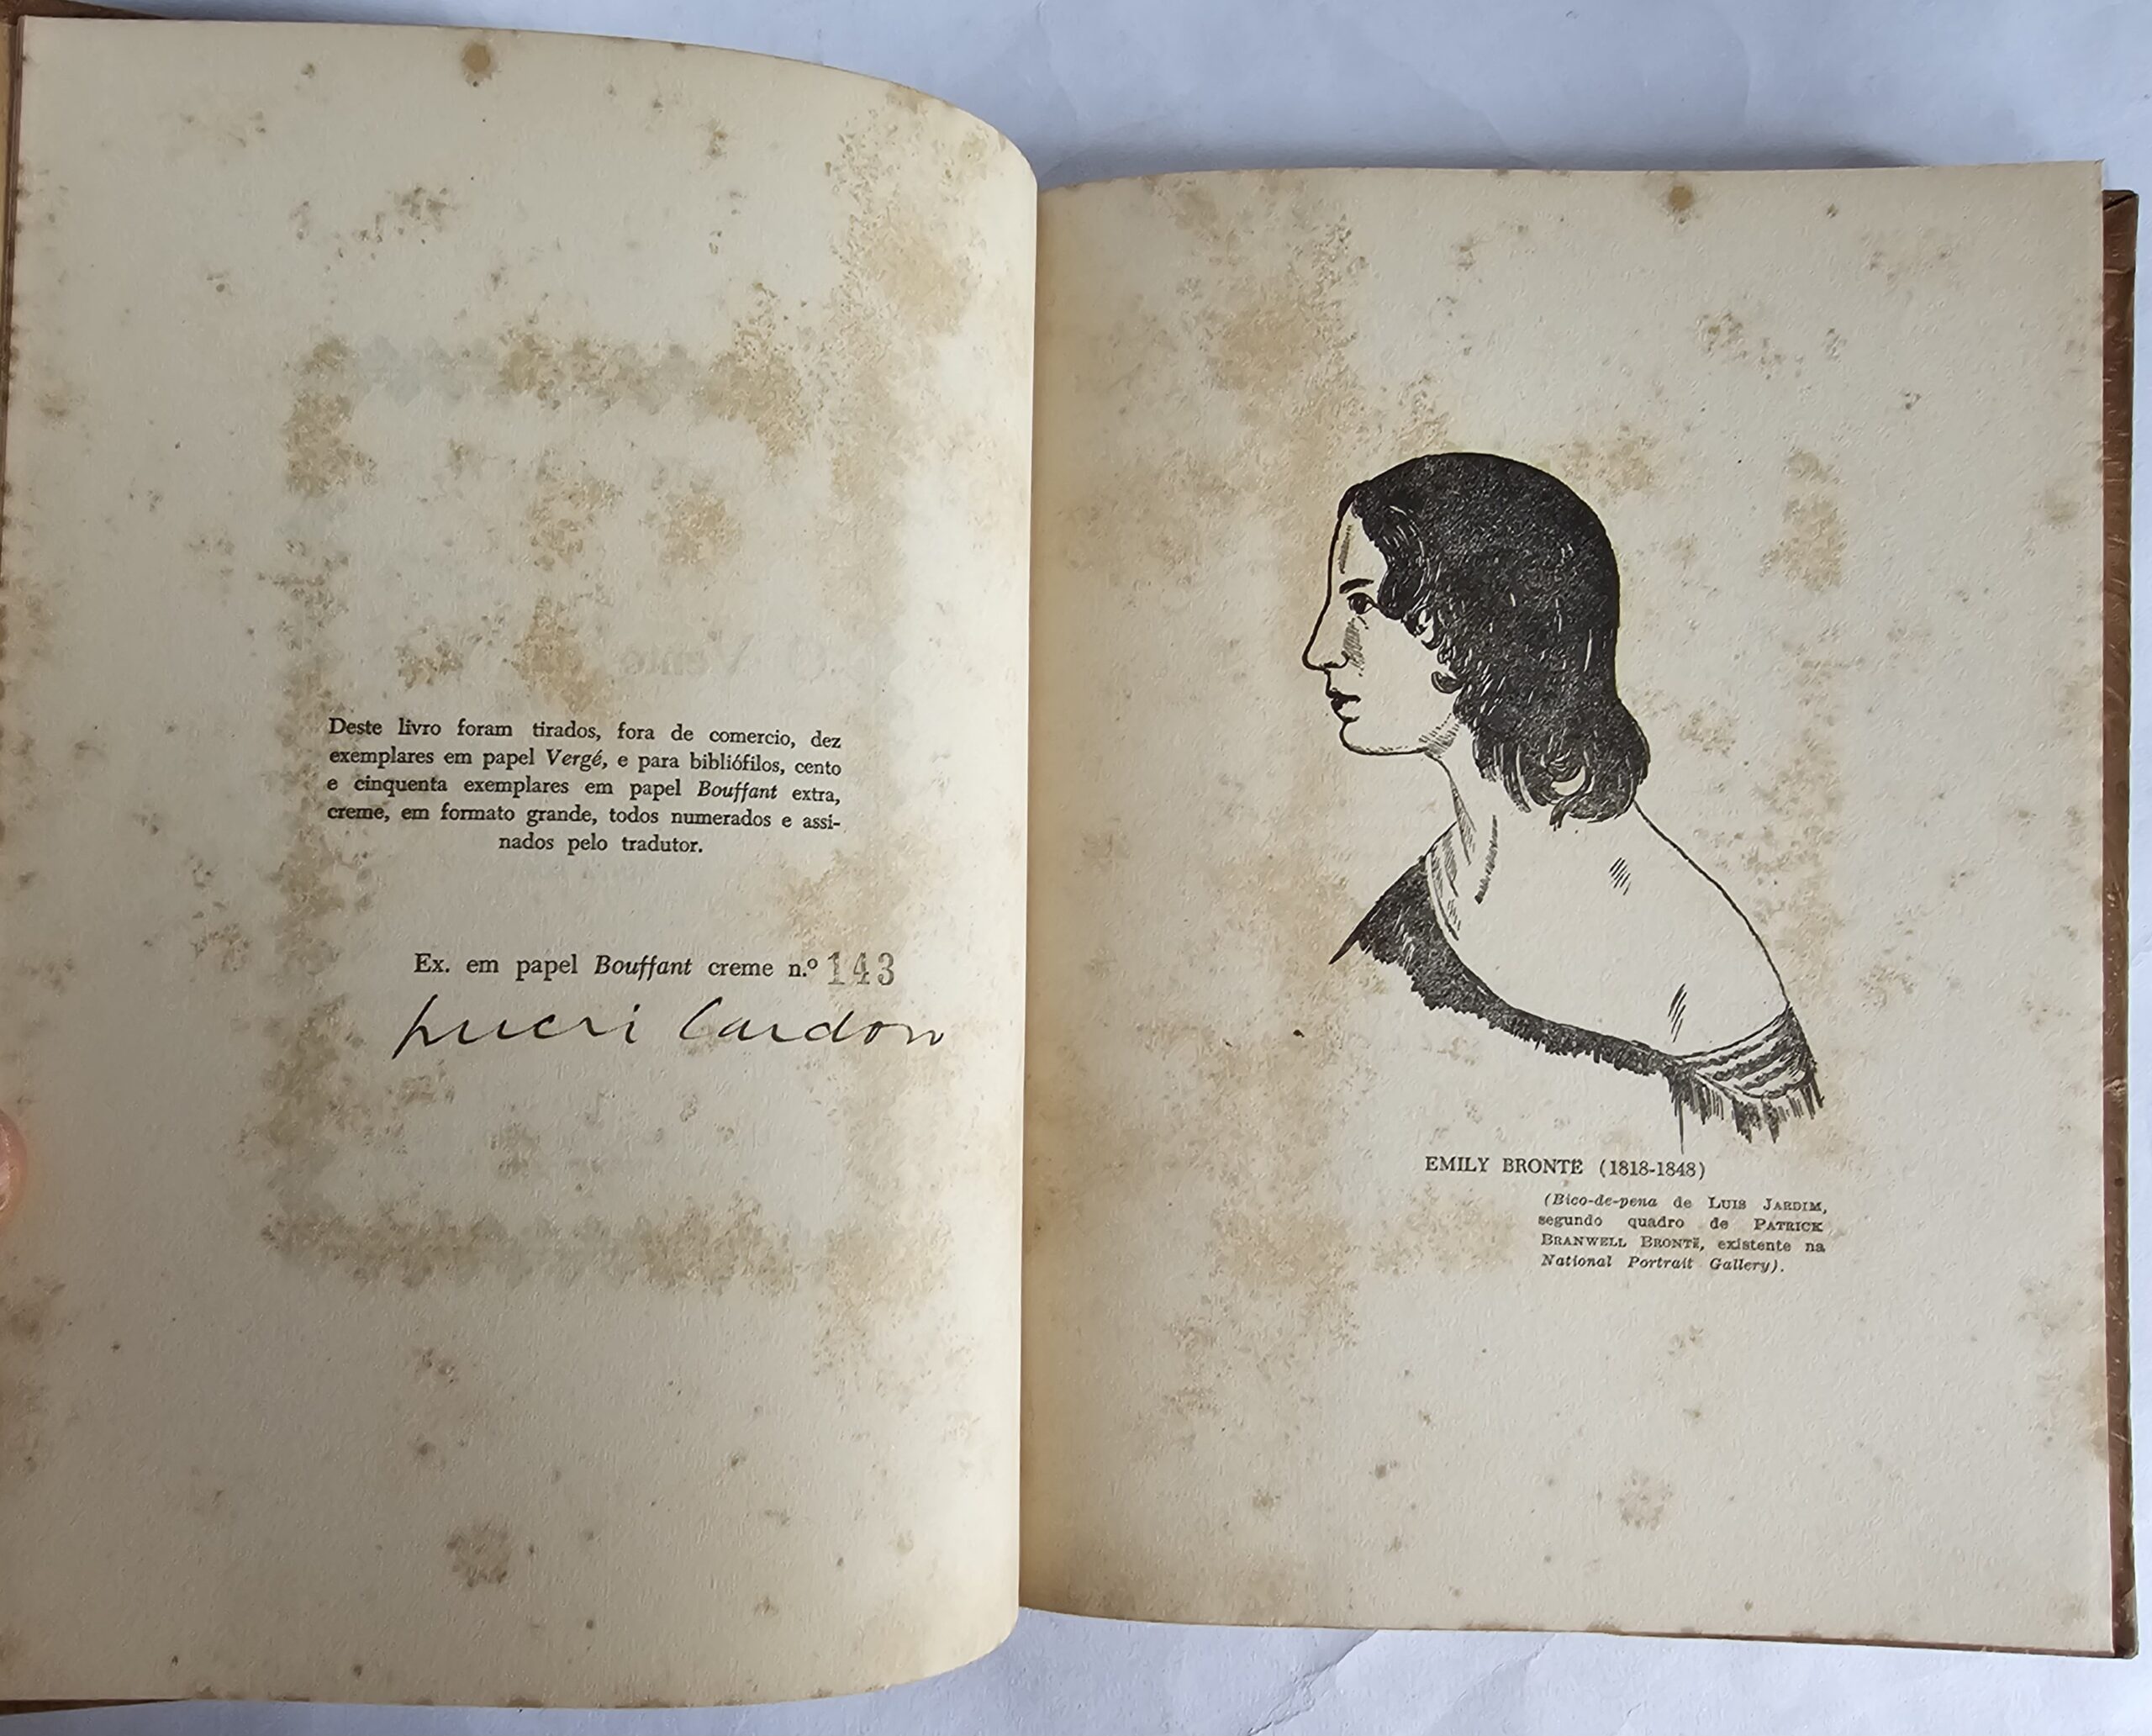 Deste livro foram tirados, fora de comercio, dez
exemplares em papel Vergé, e para bibliófilos, cento
e cinquenta exemplares em papel Bouffant extra,
creme, em formato grande, todos numerados e assi-
nados pelo tradutor.
Ex. em papel Bouffant creme n.º 143
EMILY BRONTË (1818-1848)
(Bico-de-pena de LUIS JARDIM,
segundo quadro de PATRICK
BRANWELL BRONTË, existente na
National Portrait Gallery).